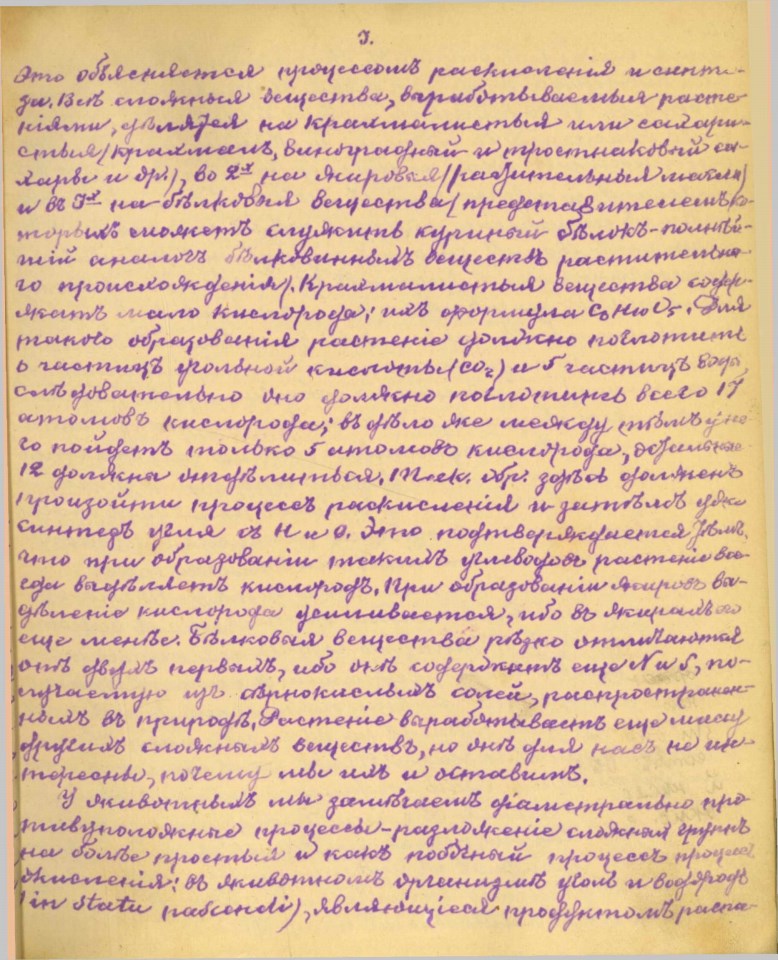 3.
Это объясняется процессомъ раскисленія и синте-
за. Всѣ сложныя вещества, вырабатываемыя расте-
ніями, дѣлятся на крахмалистыя или сахари-
стыя (крахмалъ, виноградный и тростниковый са-
харъ и др.), во 2х на жировыя (растительныя масла)
и въ 3х на бѣлковыя вещества (представителемъ ко-
торыхъ можетъ служить куриный бѣлокъ - полнѣй-
шій аналогъ бѣлковиннымъ веществъ растительна-
го происхожденія). Крахмалистыя вещества содер-
жатъ мало кислорода; ихъ формула C6 H10 O5. Для
такого образованія растеніе должно поглотить
6 частицъ угольной кислоты (CO2) и 5 частицъ воды
слѣдовательно оно должно поглотить всего 17
атомовъ кислорода; въ дѣло же между тѣмъ у не-
го пойдетъ только 5 атомовъ кислорода, остальные
12 должны отдѣлиться. Так. обр. здѣсь долженъ
произойти процессъ раскисленія и затѣмъ уже
синтезъ угля съ H и O. Это подтверждается тѣмъ,
что при образованіи такихъ углеводовъ растеніе все-
гда выдѣляетъ кислородъ. При образованіи жировъ вы-
дѣленіе кислорода усиливается, ибо въ жирахъ его
еще менѣе. Бѣлковыя вещества рѣзко отличаются
отъ двухъ первыхъ, ибо онѣ содержатъ еще N и S, по-
лучаемую изъ сѣрнокислыхъ солей, распространен-
ныхъ въ природѣ. Растеніе вырабатываетъ еще массу
другихъ сложныхъ веществъ, но онѣ для насъ не ин-
тересны, почему мы ихъ и оставимъ.
У животныхъ мы замѣчаемъ діаметрально про-
тивуположные процессы - разложеніе сложныхъ группъ
на болѣе простыя и какъ побочный процессъ процессъ
окисленія: въ животномъ организмѣ уголь и водородъ
(in statu nascendi), являющіеся продуктомъ распа-